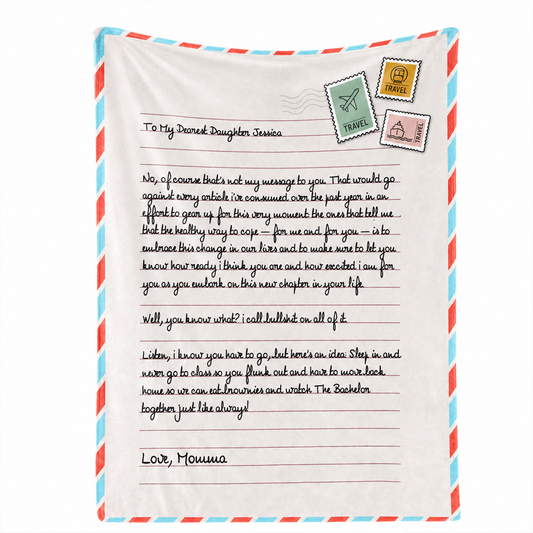 TRAVEL
TRAVEL
TRAVEL
To My Dearest Daughter Jessica
No, of course that's not my message to you. That would go
against every article i've consumed over the past year in an
effort to gear up for this very moment the ones that tell me
that the healthy way to cope — for me and for you — is to
embrace this change in our lives and to make sure to let you
know how ready i think you are and how excited i am for
you as you embark on this new chapter in your life
Well, you know what? i call bullshit on all of it.
Listen, i know you have to go, but here's an idea: Sleep in and
never go to class so you flunk out and have to move back
home so we can eat brownies and watch The Bachelor
together just like always!
Love, Momma